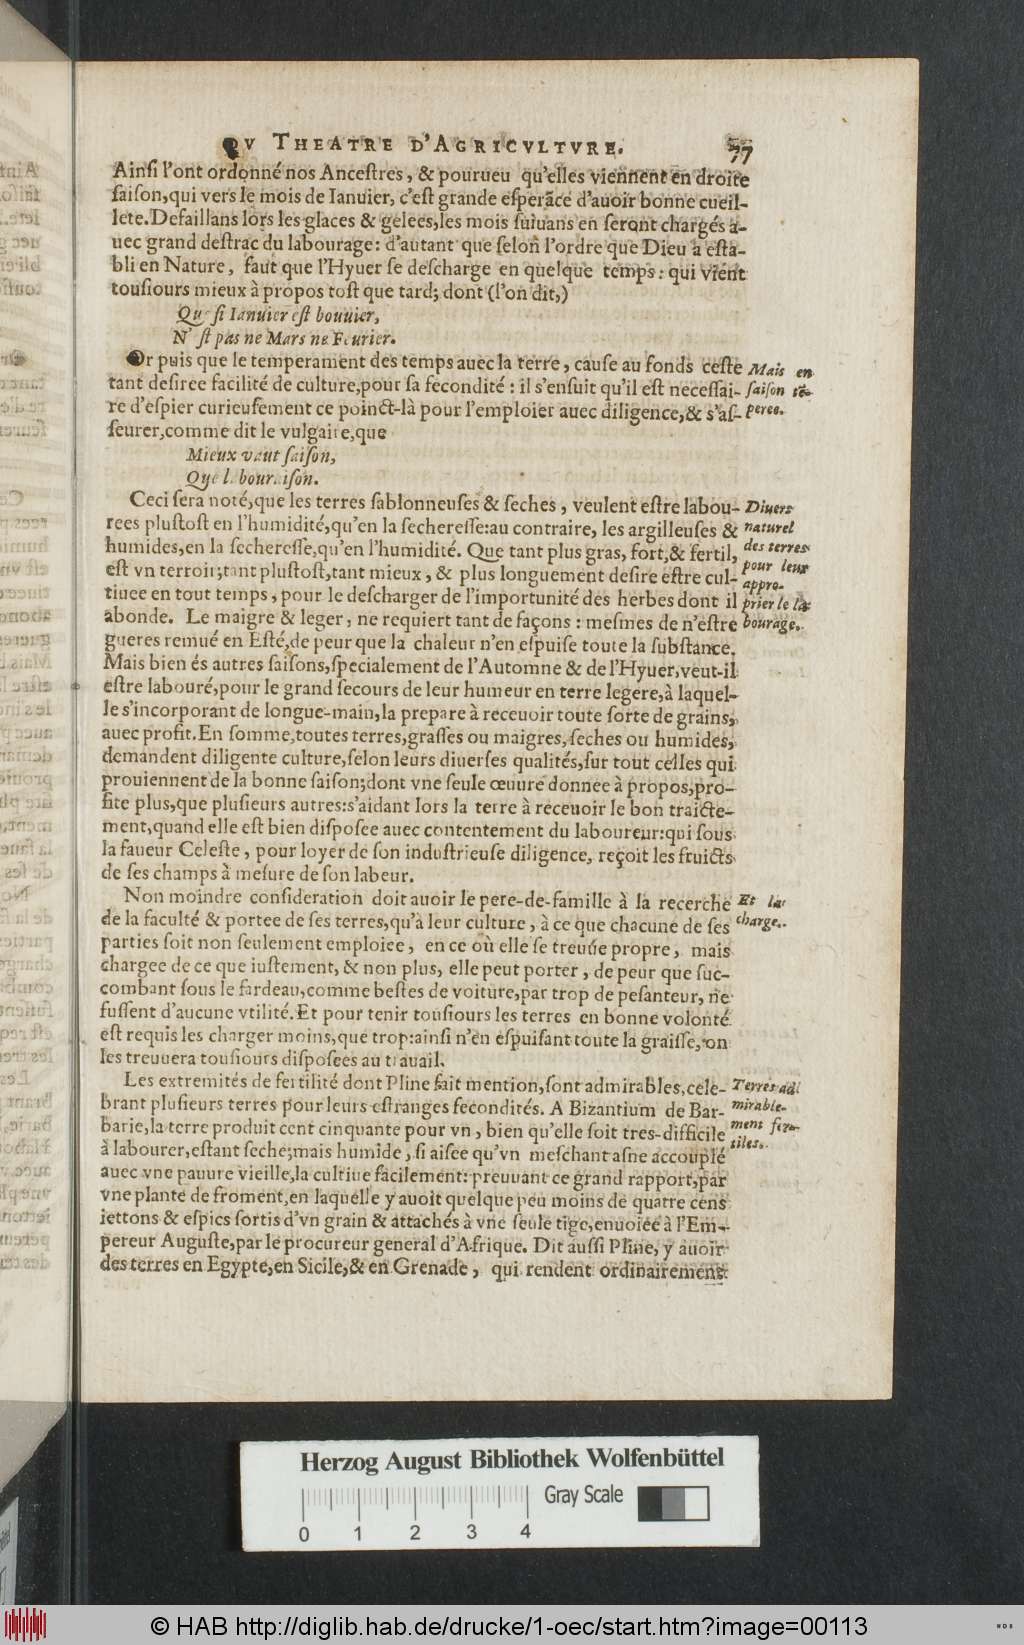 DV THEATRE D'AGRICVLTVRE. 77
Ainſi l'ont ordonné nos Anceſtres, & pourueu qu'elles viennent en droite
ſaiſon, qui vers le mois de Ianuier, c'eſt grande eſperãce d'auoir bonne cueil-
lete. Defaillans lors les glaces & gelees, les mois ſuiuans en ſeront chargés a-
uec grand deſtrac du labourage: d'autant que ſelon l'ordre que Dieu a eſta-
bli en Nature, faut que l'Hyuer ſe deſcharge en quelque temps: qui vient
touſiours mieux à propos toſt que tard; dont (l'on dit,)
Que ſi Ianuier eſt bouuier,
N'eſt pas ne Mars ne Feurier.
Or puis que le temperament des temps auec la terre, cauſe au fonds ceſte
tant deſiree facilité de culture, pour ſa fecondité: il s'enſuit qu'il eſt neceſſai-
re d'eſpier curieuſement ce poinct-là pour l'emploier auec diligence, & s'aſ-
ſeurer, comme dit le vulgaire, que
Mais en
ſaiſon tē-
peree.
Mieux vaut ſaiſon,
Que labouraiſon.
Ceci ſera noté, que les terres ſablonneuſes & ſeches, veulent eſtre labou-
rees pluſtoſt en l'humidité, qu'en la ſechereſſe: au contraire, les argilleuſes &
humides, en la ſechereſſe, qu'en l'humidité. Que tant plus gras, fort, & fertil,
eſt vn terroir; tant pluſtoſt, tant mieux, & plus longuement deſire eſtre cul-
tiuee en tout temps, pour le deſcharger de l'importunité des herbes dont il
abonde. Le maigre & leger, ne requiert tant de façons: meſmes de n'eſtre
gueres remué en Eſté, de peur que la chaleur n'en eſpuiſe toute la ſubſtance.
Diuers
naturel
des terres
pour leur
appro-
prier le la-
bourage.
Mais bien és autres ſaiſons, ſpecialement de l'Automne & de l'Hyuer, veut-il
eſtre labouré, pour le grand ſecours de leur humeur en terre legere, à laquel-
le s'incorporant de longue-main, la prepare à receuoir toute ſorte de grains,
auec profit. En ſomme, toutes terres, graſſes ou maigres, ſeches ou humides,
demandent diligente culture, ſelon leurs diuerſes qualités, ſur tout celles qui
prouiennent de la bonne ſaiſon; dont vne ſeule œuure donnee à propos, pro-
fite plus, que pluſieurs autres: s'aidant lors la terre à receuoir le bon traicte-
ment, quand elle eſt bien diſpoſee auec contentement du laboureur: qui ſous
la faueur Celeſte, pour loyer de ſon induſtrieuſe diligence, reçoit les fruicts
de ſes champs à meſure de ſon labeur.
Non moindre conſideration doit auoir le pere-de-famille à la recerche
de la faculté & portee de ſes terres, qu'à leur culture, à ce que chacune de ſes
parties ſoit non ſeulement emploiee, en ce où elle ſe treuue propre, mais
chargee de ce que iuſtement, & non plus, elle peut porter, de peur que ſuc-
combant ſous le fardeau, comme beſtes de voiture, par trop de peſanteur, ne
fuſſent d'aucune vtilité. Et pour tenir touſiours les terres en bonne volonté
eſt requis les charger moins, que trop: ainſi n'en eſpuiſant toute la graiſſe, on
les treuuera touſiours diſpoſees au trauail.
Et la
charge.
Les extremités de fertilité dont Pline fait mention, ſont admirables, cele-
brant pluſieurs terres pour leurs eſtranges fecondités. A Bizantium de Bar-
barie, la terre produit cent cinquante pour vn, bien qu'elle ſoit tres-difficile
à labourer, eſtant ſeche; mais humide, ſi aiſee qu'vn meſchant aſne accouplé
auec vne pauure vieille, la cultiue facilement: preuuant ce grand rapport, par
vne plante de froment, en laquelle y auoit quelque peu moins de quatre cens
iettons & eſpics ſortis d'vn grain & attachés à vne ſeule tige, enuoiée à l'Em-
pereur Auguſte, par le procureur general d'Afrique. Dit auſſi Pline, y auoir
des terres en Egypte, en Sicile, & en Grenade, qui rendent ordinairement
Terres ad-
mirable-
ment fer-
tiles.
Herzog August Bibliothek Wolfenbüttel
0 1 2 3 4
Gray Scale
© HAB http://diglib.hab.de/drucke/1-oec/start.htm?image=00113